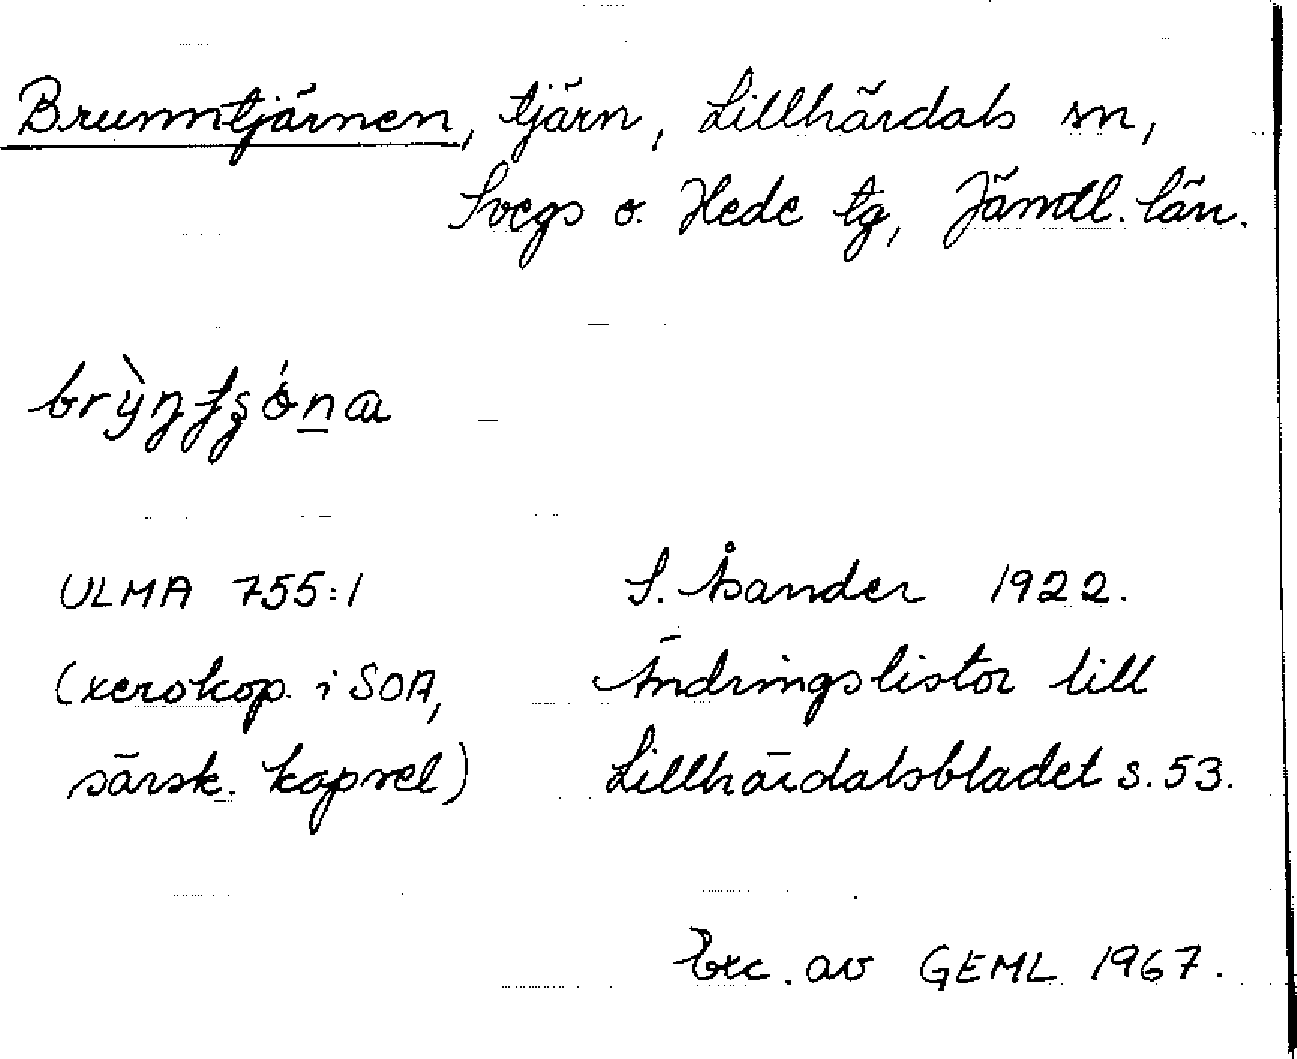 Brunntjärnen, tjärn, Lillhärdals sn,
Svegs o. Hede tg, Jämtl. län.
ULMA 755:1 S. Åsander 1922.
(xerokop. i SOA, Ändringslistor till
särsk. kapsel) Lillhärdalsbladet s. 53.
Exc. av GEML 1967.